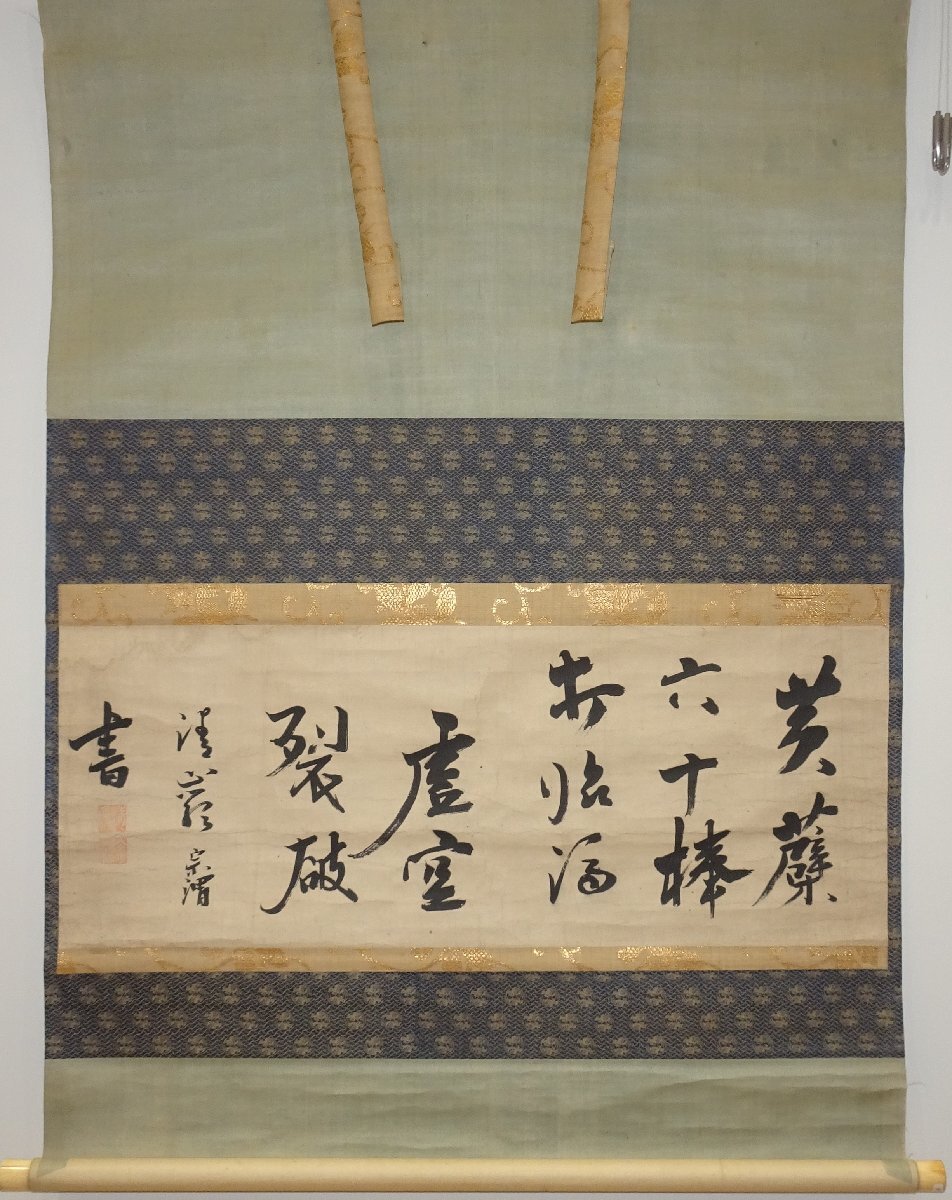 黄蘗
六十棒
打臨済
虚空
裂破
清巌宗渭
書